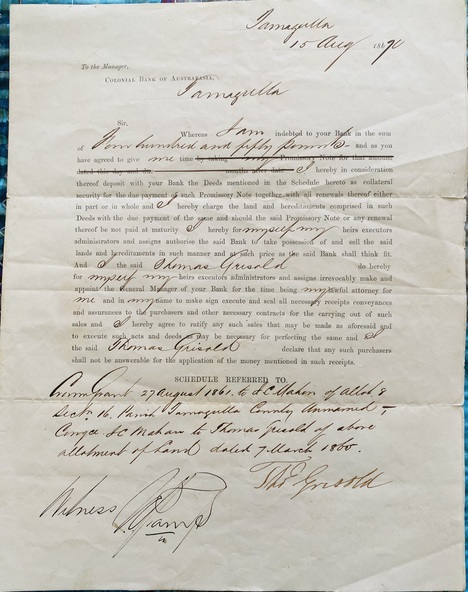 Tarnagulla
15 Aug 1870
To the Manager,
COLONIAL BANK OF AUSTRALASIA,
Tarnagulla
Sir,
Whereas I am indebted to your Bank in the sum
of Four hundred and fifty pounds - and as you
have agreed to give me time by taking my Promissory Note for that amount
dated this day and do months after date I hereby in consideration
thereof deposit with your Bank the Deeds mentioned in the Schedule hereto as collateral
security for the due payment of such Promissory Note together with all renewals thereof either
in part or in whole and I hereby charge the land and hereditaments comprised in such
Deeds with the due payment of the same and should the said Promissory Note or any renewal
thereof be not paid at maturity I hereby for myself my heirs executors
administrators and assigns authorise the said Bank to take possession of and sell the said
lands and hereditaments in such manner and at such price as the said Bank shall think fit.
And I the said Thomas Grisold do hereby
for myself my heirs executors administrators and assigns irrevocably make and
appoint the General Manager of your Bank for the time being my lawful attorney for
me and in my name to make sign execute and seal all necessary receipts conveyances
and assurances to the purchasers and other necessary contracts for the carrying out of such
sales and I hereby agree to ratify any such sales that may be made as aforesaid and
to execute such acts and deeds as may be necessary for perfecting the same and I
the said Thomas Grisold declare that any such purchasers
shall not be answerable for the application of the money mentioned in such receipts.
SCHEDULE REFERRED TO.
Crown grant 27 August 1861. to McMahon of Allot 8
Sectn 16, Parish Tarnagulla County Unnamed &
Convce McMahon to Thomas Grisold of above
allotment of Land dated 7 March 1865.
Thos Grisold
Witness